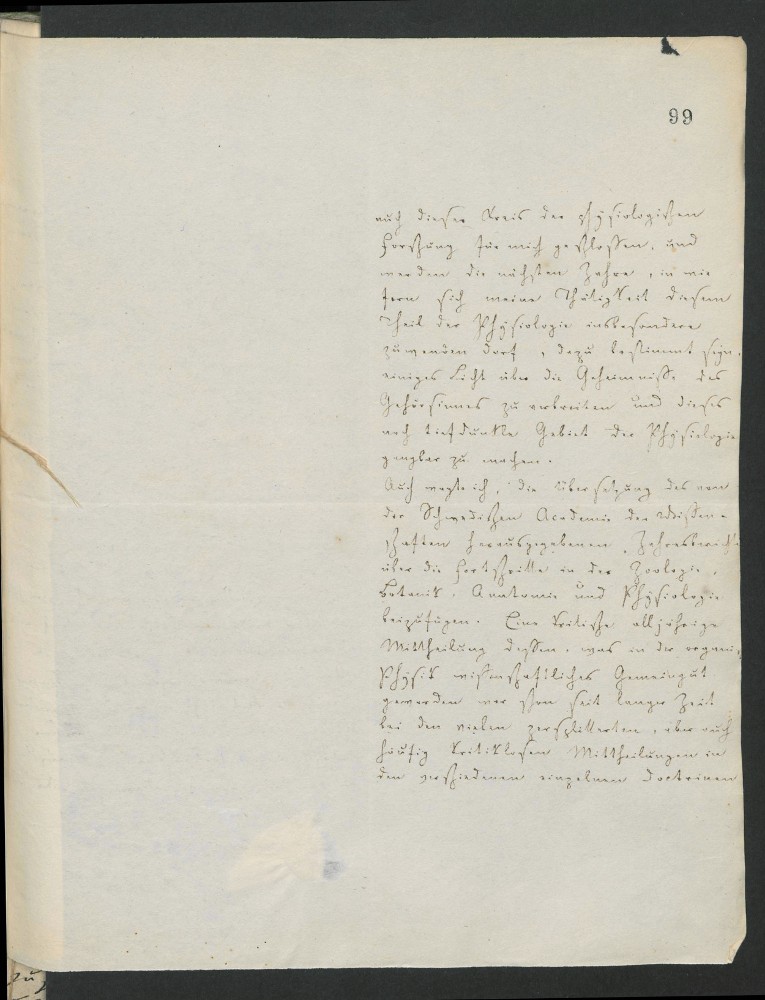 99
auch dieser Kreis der physiologischen
Forschung für mich geschlossen, und
werden die nächsten Jahre, in wie
fern sich meine Thätigkeit diesem
Theil der Physiologie insbesondere
zuwenden darf, dazu bestimmt seyn,
einiges Licht über die Geheimnisse des
Gehörsinnes zu verbreiten und dieses
noch tiefdunkle Gebiet der Physiologie
gangbar zu machen.
Auch wagte ich, die Übersetzung des von
der Schwedischen Academie der Wissen-
schaften herausgegebenen Jahresberichts
über die Fortschritte in der Zoologie,
Botanik, Anatomie und Physiologie
beizufügen. Eine kritische alljährige
Mittheilung dessen, was in der organi
Physik wissenschaftliches Gemeingut
geworden war schon seit langer Zeit
bei den vielen zersplitterten, aber auch
häufig kritiklosen Mittheilungen in
den verschiedenen einzelnen Doctrinen
zu